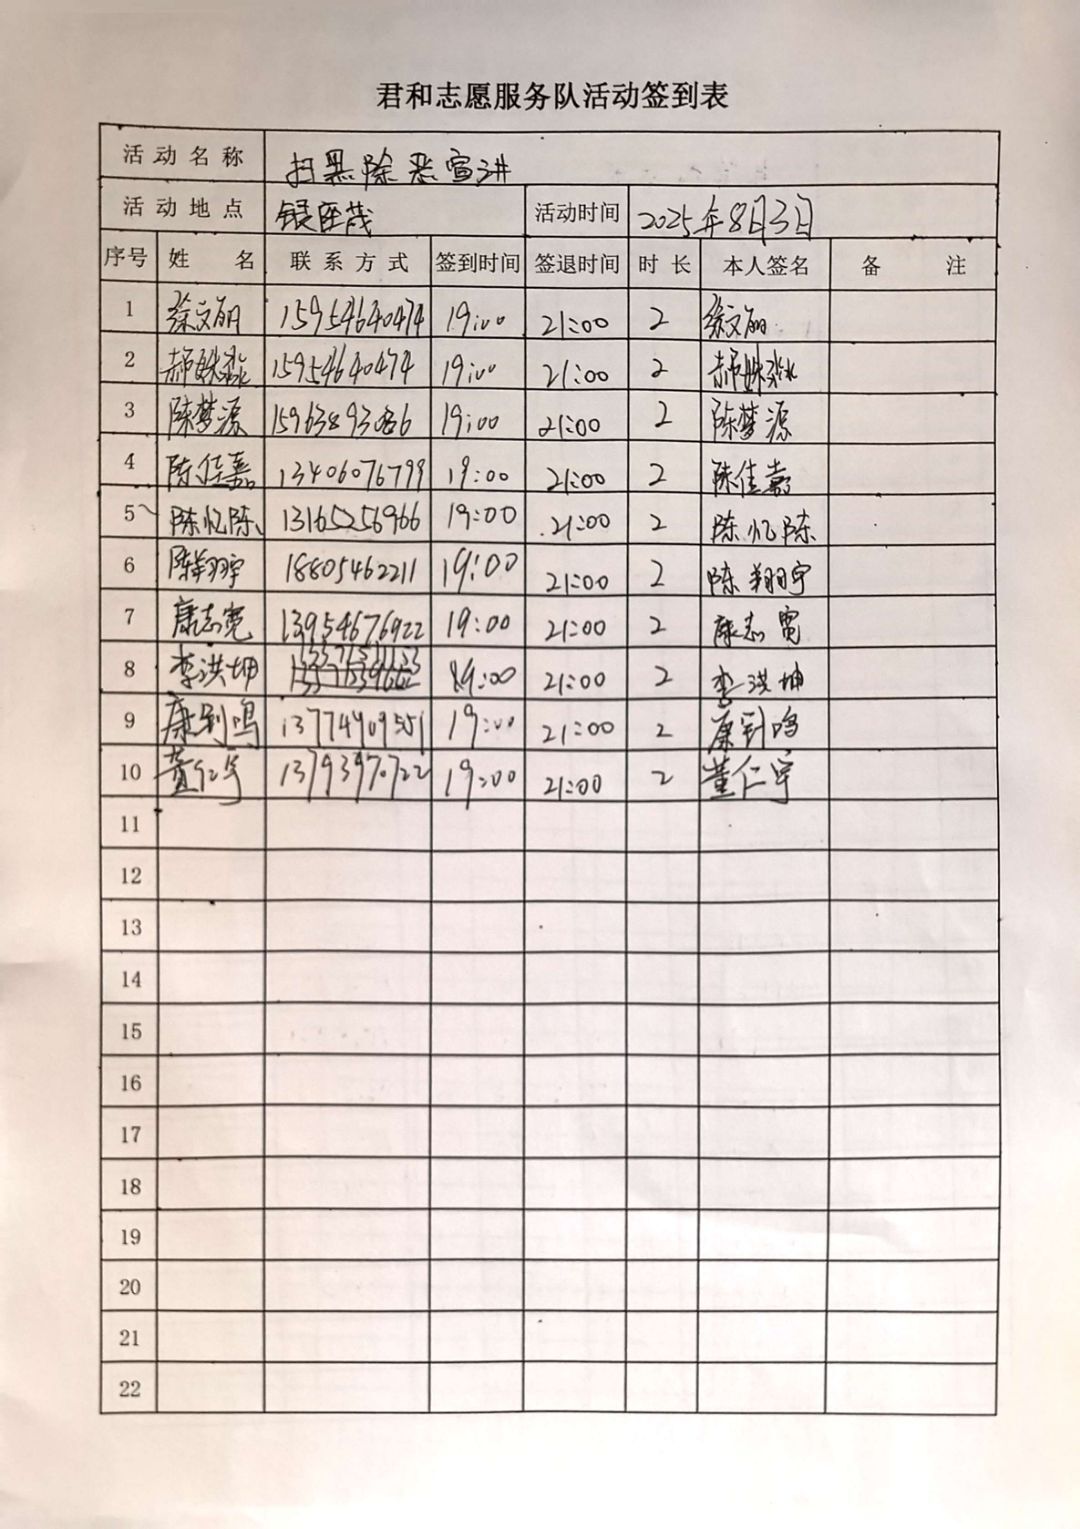 君和志愿服务队活动签到表
活动名称 扫黑除恶宣讲
活动地点 银座茂 活动时间 2025年8月3日
序号 姓名 联系方式 签到时间 签退时间 时长 本人签名 备注
1 徐文丽 15954640474 19:00 21:00 2 徐文丽
2 郝姝淼 15954640474 19:00 21:00 2 郝姝淼
3 陈梦源 15963893086 19:00 21:00 2 陈梦源
4 陈佳嘉 13406076799 19:00 21:00 2 陈佳嘉
5 陈忆陈 13165256966 19:00 21:00 2 陈忆陈
6 陈翔宇 18805462211 19:00 21:00 2 陈翔宇
7 康志宽 13954676922 19:00 21:00 2 康志宽
8 李洪坤 19:00 21:00 2 李洪坤
9 19:00 21:00 2
10 董仁宇 19:00 21:00 2 董仁宇
11
12
13
14
15
16
17
18
19
20
21
22